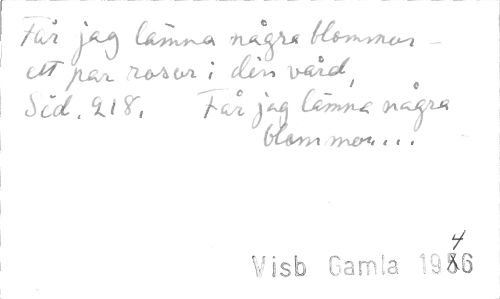 Får jag lämna några blommor –
ett par rosor i din vård,
Sid. 218. Får jag lämna några
blommor....
4
Visb Gamla 1986